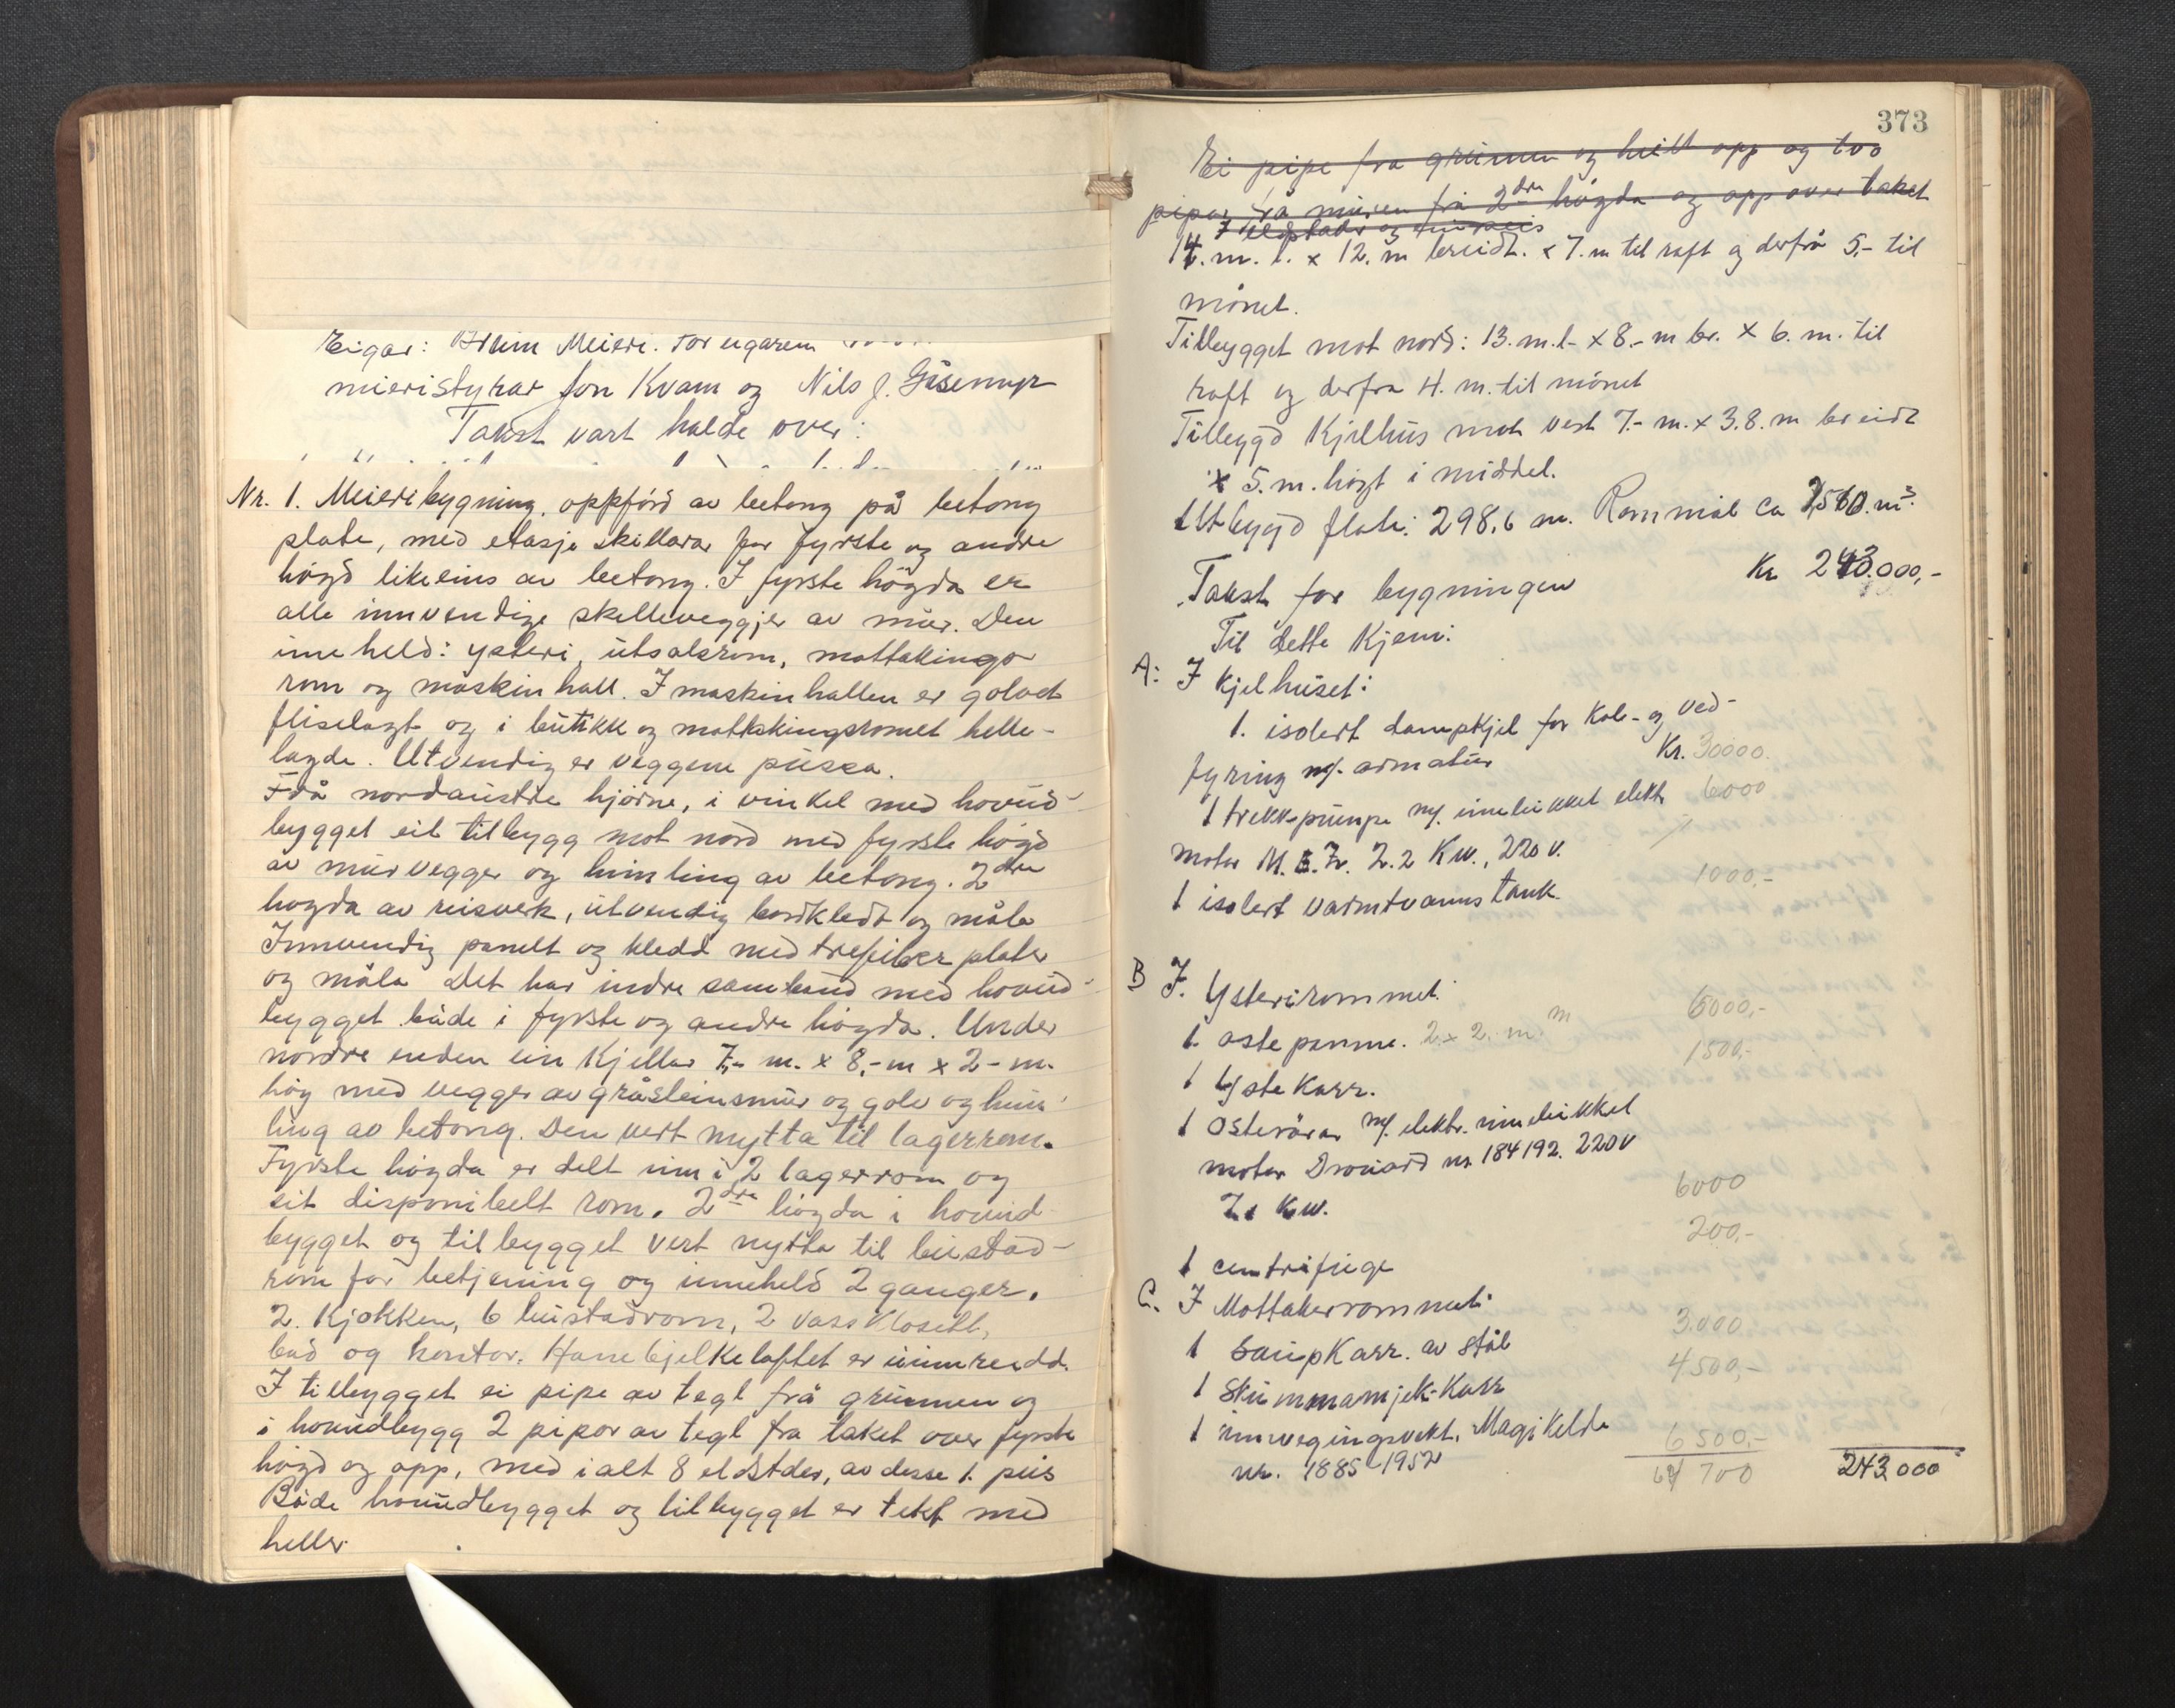 Eigar: Breim Meieri. For eigaren
mieristyrar Jon Kvam og Nils J.
Takst vart halde over:
Nr. 1. Meieribygning, oppförd av betong på betong
plate, med etasje skillarar for fyrste og andre
högd likeeins av betong. I fyrste högda er
alle innvendige skilleveggjer av mur. Den
inneheld: ysteri, utsalsrom, mottakings
rom og maskinhall. I maskinhallen er golvet
fliselagt og i butikk og mottakingsromet helle-
lagde. Utvendig er veggene pussa.
Frå nordaustre hjörne, i vinkel med hovud-
bygget eit tilbygg mot nord med fyrste högd
av murvegger og himling av betong. 2dre
högda av reisverk, utvendig bordkledt og måla
Innvendig panelt og kledd med trefiber plater
og måla Det har indre samband med hovud-
bygget både i fyrste og andre högda. Under
nordre enden ein Kjellar 7,- m. x 8,- m x 2- m.
høg med vegger av gråsteinsmur og golv og him
ling av betong. Den vert nytta til lagerrom.
Fyrste högda er delt inn i 2 lagerrom og
eit disponibelt rom. 2dre högda i hovud
bygget og tilbygget vert nytta til bustad-
rom for betjening og inneheld 2 ganger.
2. Kjøkken, 6 bustadrom, 2 vassklosett,
bad og kontor. Hanebjelkeloftet er uinnreidd.
I tilbygget ei pipe av tegl frå grunnen og
i hovudbygg 2 pipor av tegl fra taket over fyrste
högd og opp, med ialt 8 eldstder, av desse 1. peis
Både hovudbygget og tilbygget er tekt med
heller
373
Ei pipe fra grunnen og heilt opp og tvo
pipor frå muren frå 2dre högda og opp over taket
7 eldstader og ein peis
14. m. l. x 12. m breidt. x 7. m til raft og derfrå 5,- til
mönet.
Tilbygget mot nord: 13. m. l- x 8.- m br. x 6. m. til
raft og derfra 4. m. til mönet
Tilbygd Kjelhus mot vest 7.- m. x 3.8. m breidt
x 5. m. högt i middel.
Utbygd flate: 298,6 m. Rommål ca m³.
Takst for bygningen Kr 243.000,-
Til dette Kjem:
A: I kjelhuset:
1. isolert dampkjel for Kol- og ved-
fyring m/. armatur Kr. 30000.
1 trekkpumpe m/. innebikket elekt. 6000
motor M. E. Z. 2.2 Kw., 220 v.
1 isolert varmtvanns tank. 1000,-
B I. Ysterirommet.
1. oste panne. 2 x 2. m. m 6000,-
1 Yste Karr. 1500,-
1 Osterörar m/. elektr. innebikket
motor nr 184192. 220 V
Kw. 6000
1 centrifuge 200,-
C. I Mottakerrommet:
1 Saup Karr. av stål 3.000
1 Skummamjelk-Karr 4500,-
1 innvegingsvekt. 6500,-
nr. 1885 1952 700 243.000